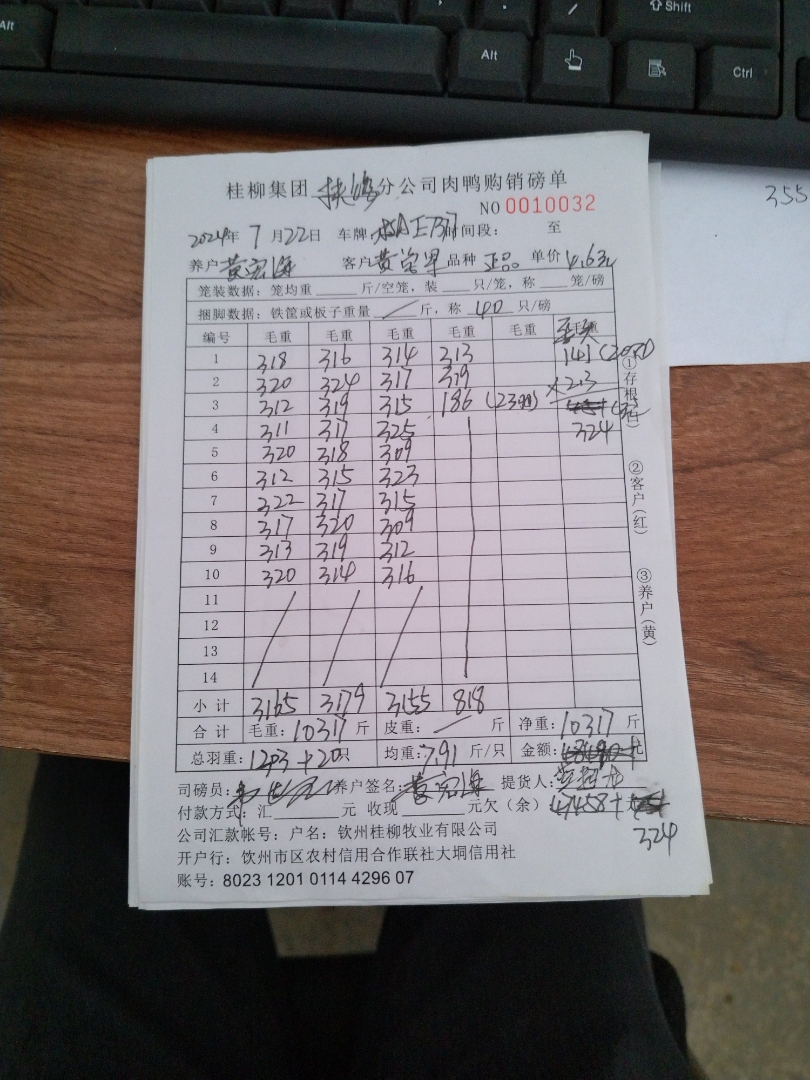 Alt
Alt
Shift
Ctrl
355
桂柳集团 分公司肉鸭购销磅单
NO 0010032
2024年 7月22日 车牌 时间段: 至
养户 黄宏海 客户 品种 正品 单价 4.63元
笼装数据: 笼均重 斤/空笼, 装 只/笼, 称 笼/磅
捆脚数据: 铁筐或板子重量 / 斤, 称 40 只/磅
编号 毛重 毛重 毛重 毛重 毛重
1 318 316 314 313 141
2 320 324 317 319 ×2.3
3 312 319 315 186 (23只)
4 311 317 325 324
5 320 318 309
6 312 315 323
7 322 317 315
8 317 320 309
9 313 319 312
10 320 314 316
11
12
13
14
小计 3165 3179 3155 818
合计 毛重: 10317 斤 皮重: / 斤 净重: 10317 斤
总羽重: 1283+20只 均重: 7.91 斤/只 金额: 元
司磅员: 养户签名: 黄宏海 提货人:
付款方式: 汇 元 收现 元欠(余) 47458+
324
公司汇款帐号: 户名: 钦州桂柳牧业有限公司
开户行: 钦州市区农村信用合作联社大垌信用社
账号: 8023 1201 0114 4296 07
①存根(白)
②客户(红)
③养户(黄)